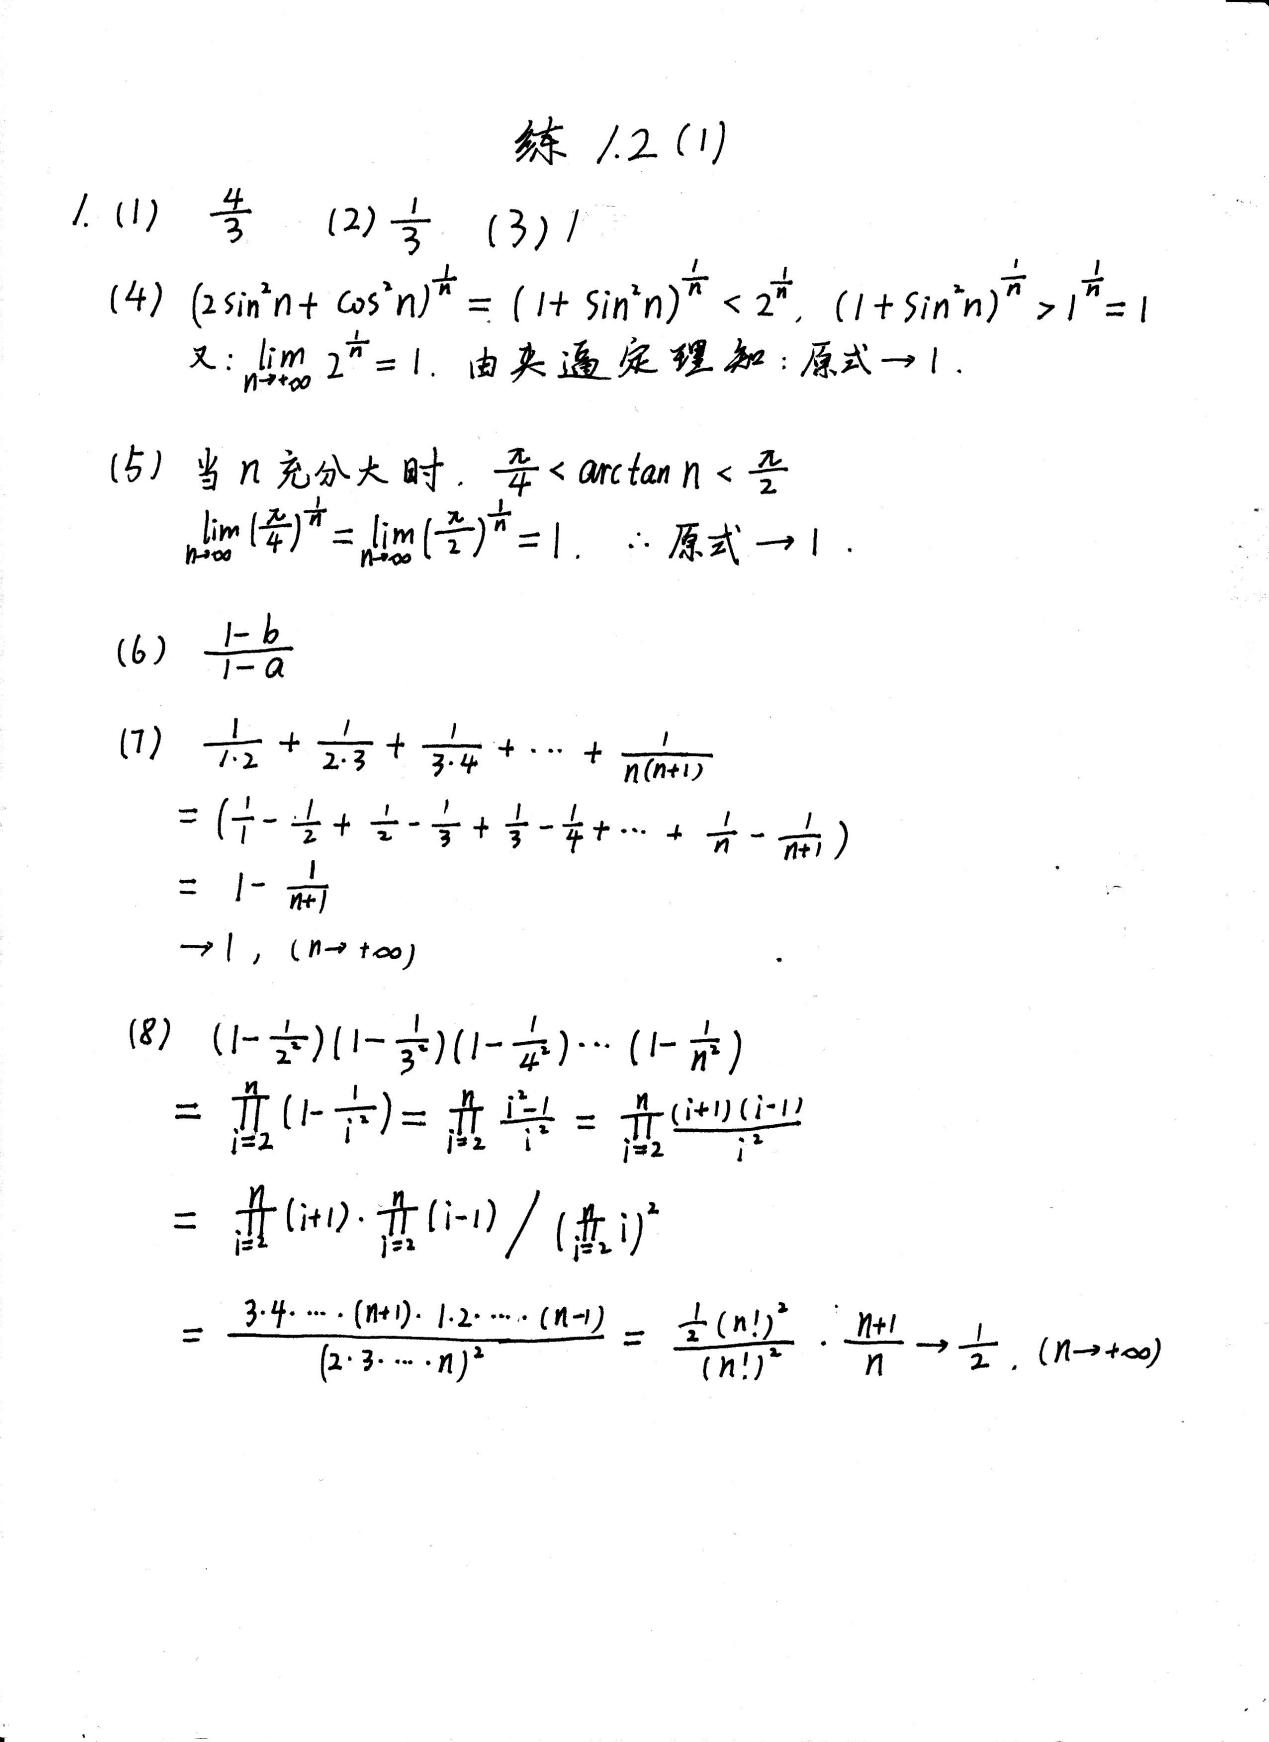 练 1.2 (1)
1. (1) 4/3 (2) 1/3 (3) 1
(4) (2sin²n + cos²n)^(1/n) = (1 + sin²n)^(1/n) < 2^(1/n), (1 + sin²n)^(1/n) > 1^(1/n) = 1
又: lim_{n→+∞} 2^(1/n) = 1. 由夹逼定理知: 原式→1.
(5) 当n充分大时. π/4 < arctan n < π/2
lim_{n→∞} (π/4)^(1/n) = lim_{n→∞} (π/2)^(1/n) = 1. ∴ 原式→1.
(6) (1-b)/(1-a)
(7) 1/(1·2) + 1/(2·3) + 1/(3·4) + ··· + 1/(n(n+1))
= (1/1 - 1/2 + 1/2 - 1/3 + 1/3 - 1/4 + ··· + 1/n - 1/(n+1))
= 1 - 1/(n+1)
→1, (n→+∞)
(8) (1 - 1/2²)(1 - 1/3²)(1 - 1/4²)···(1 - 1/n²)
= ∏_{i=2}^{n} (1 - 1/i²) = ∏_{i=2}^{n} (i²-1)/i² = ∏_{i=2}^{n} (i+1)(i-1)/i²
= ∏_{i=2}^{n} (i+1) · ∏_{i=2}^{n} (i-1) / (∏_{i=2}^{n} i)²
= (3·4·····(n+1)·1·2·····(n-1))/(2·3·····n)² = (1/2 (n!)²)/(n!)² · (n+1)/n → 1/2. (n→+∞)